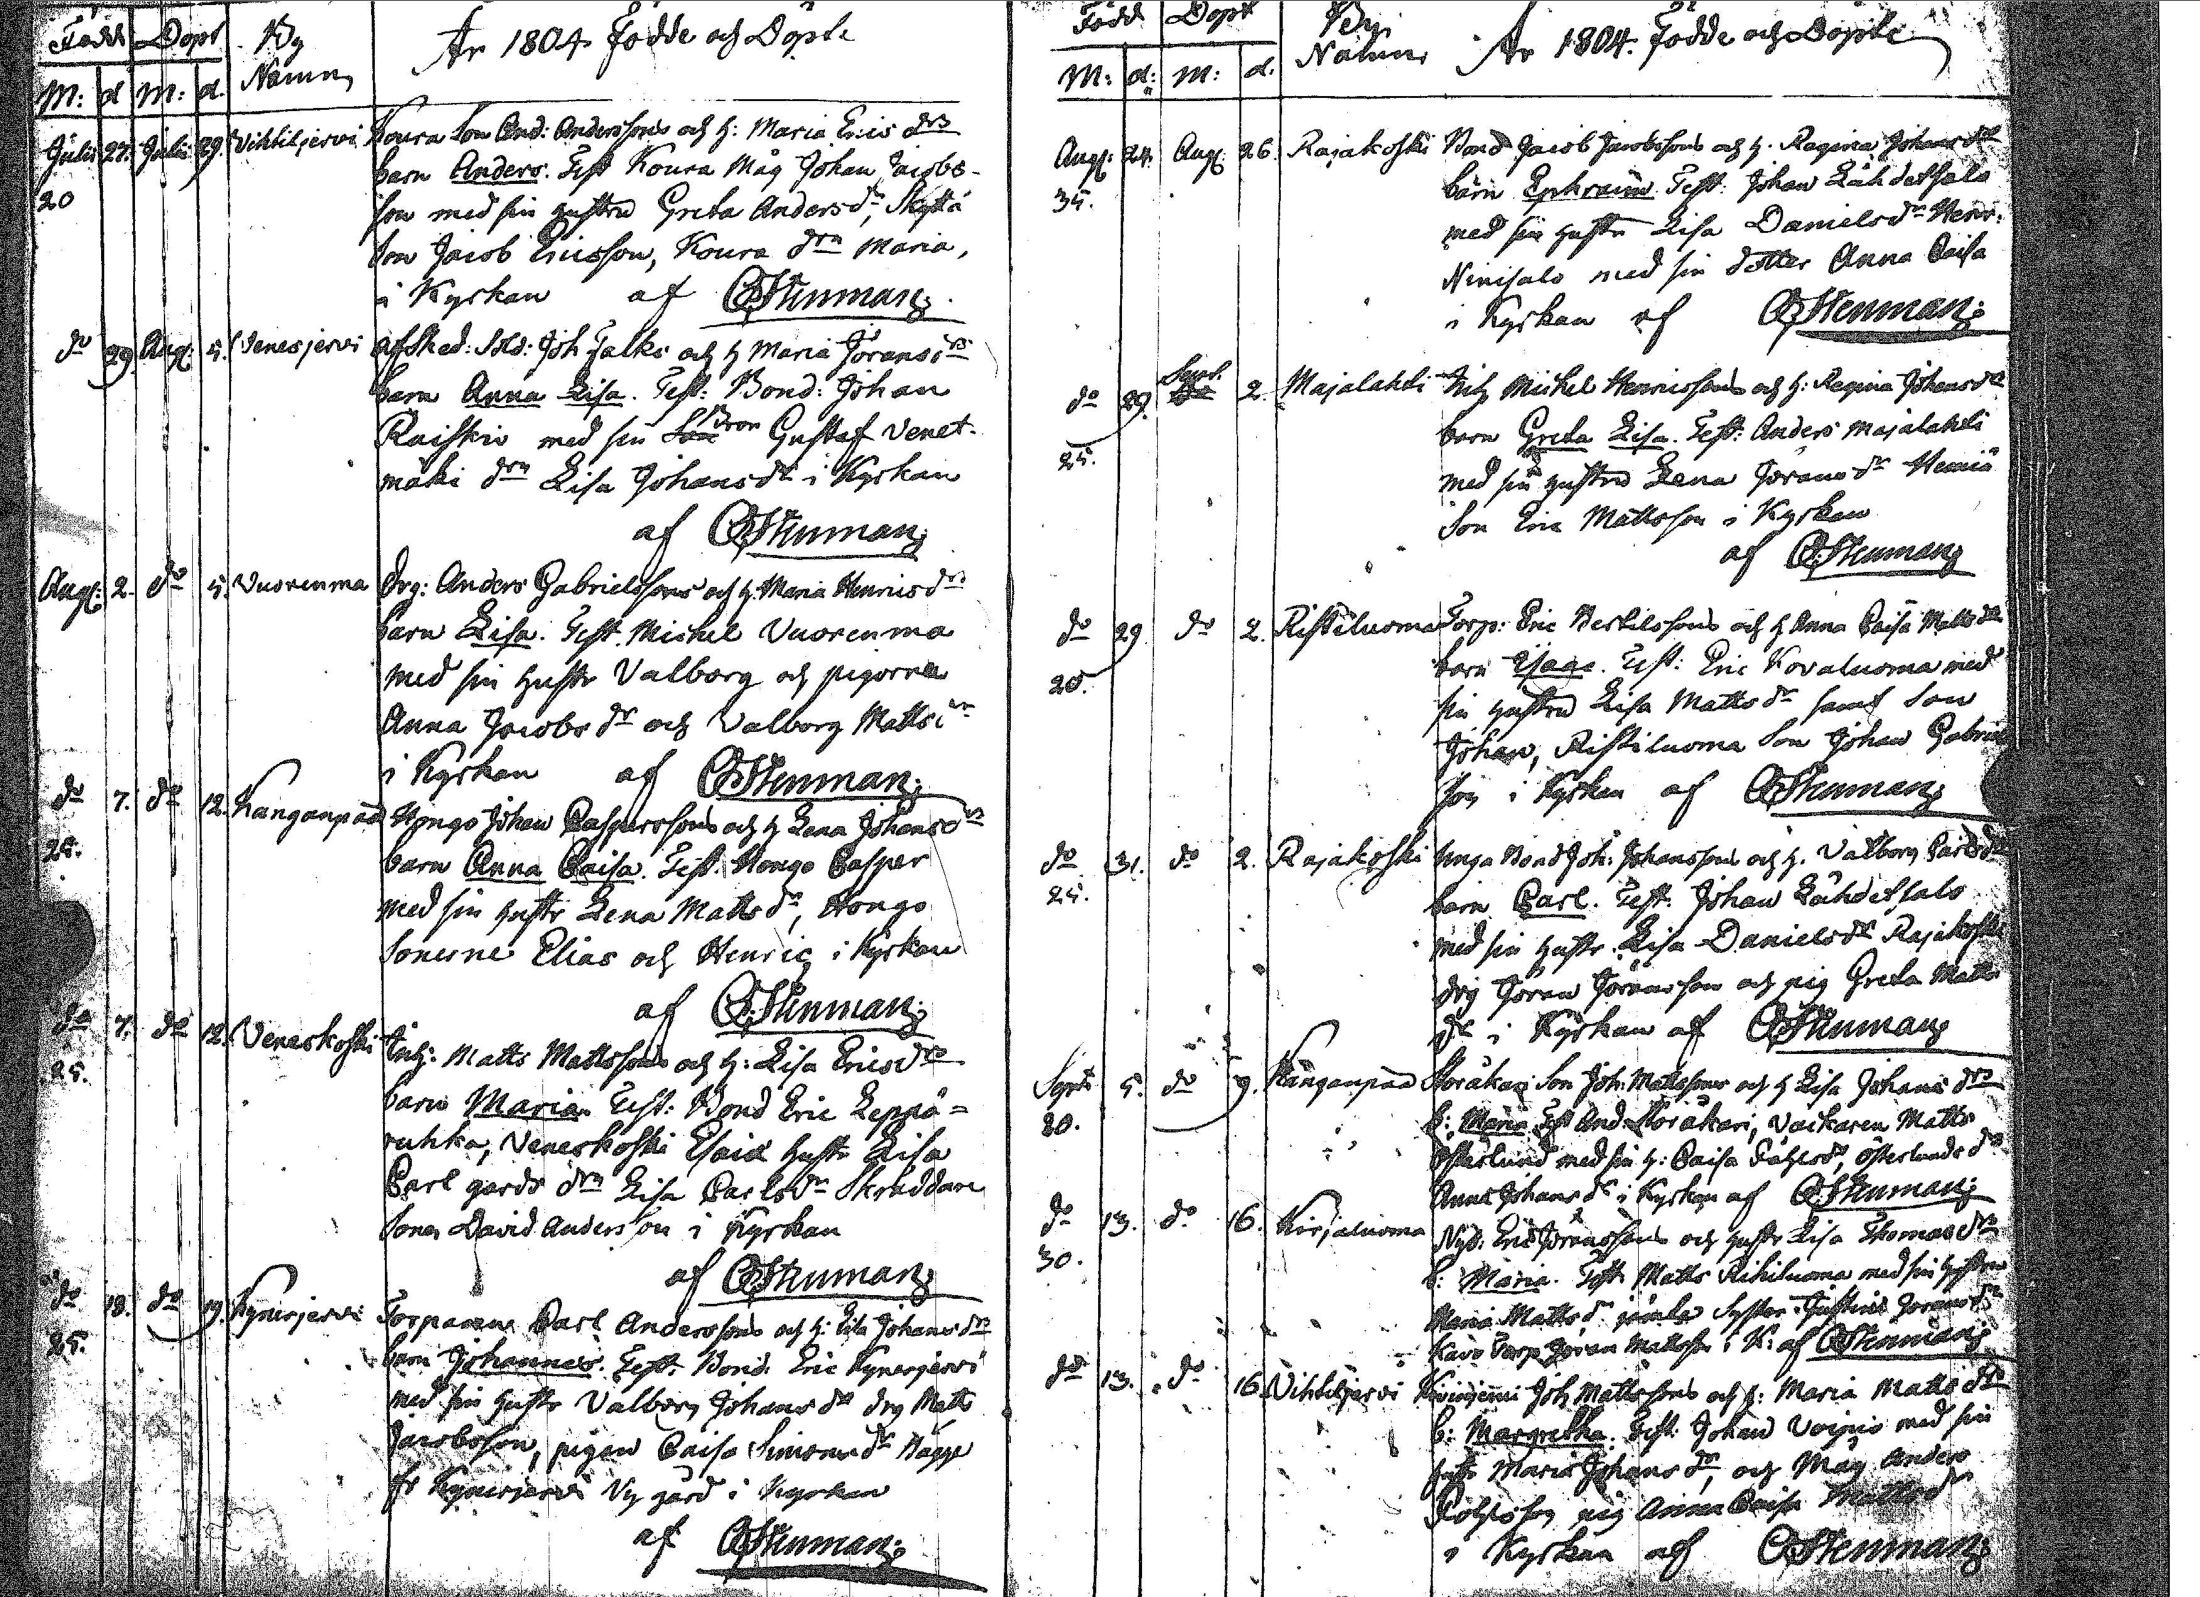 Född Döpt By Namn År 1804 Födde och Döpte
M: d M: d.
Julii 27. Julii 29. Vihtiljervi Koura Son And: Anderssons och h: Maria Erics drs
barn Anders. Test Koura Måg Johan Jacobs-
20 son med sin hustru Greta Anders dr, Skyttä
Son Jacob Ericsson, Koura drn Maria,
i Kyrkan af CStenman
do 29 Aug: 5. Venesjervi Afsked: Sold: Joh Falks och h Maria Jörans drs
barn Anna Lisa. Test: Bond: Johan
Raiskio med sin Bron Gustaf Venet-
mäki drn Lisa Johans dr i Kyrkan
af CStenman
Aug: 2. do 5. Vuorenma Drg: Anders Gabrielssons och h: Maria Henrics drs
barn Lisa. Test. Michel Vuorenma
med sin hustr Valborg och pigorna
Anna Jacobs dr och Valborg Matts
i Kyrkan af CStenman
do 7. do 12. Kanganpää Hongo Johan Caspersssons och h Lena Johans drs
25. barn Anna Caisa. Test. Hongo Casper
med sin hustr Lena Matts dr, Hongo
Sönerne Elias och Henric i Kyrkan
af CStenman
do 7. do 12. Veneskoski Inh: Matts Mattssons och h: Lisa Erics drs
25. barn Maria. Test: Bond Eric Leppä=
ruhka, Veneskoski Esaias hustr Lisa
Carl gards drn Lisa Carls dr Skräddare
Sonen David Andersson i Kyrkan
af CStenman
do 18. do 19. Kynerjervi Torparen Carl Anderssons och h: Lisa Johans drs
25. barn Johannes. Test. Bond. Eric Kynerjervi
med sin hustr Valborg Johans dr drg Matts
Jacobsson, pigan Caisa Simons dr Hägge
fr Kynerjervi Ny gård i Kyrkan
af CStenman
Född Döpt By Namn År 1804. Födde och Döpte
M: d: M: d.
Aug: 24. Aug: 26. Rajakoski Bond Jacob Jacobssons och h. Regina Johans drs
35. barn Ephraim. Test: Johan Lähdetsalo
med sin hustr Lisa Daniels dr Henr:
Ninisalo med sin dotter Anna Caisa
i Kyrkan af CStenman
do 29. Sept. 2. Majalahti Inh Michel Henricssons och h: Regina Johans drs
25. barn Greta Lisa. Test: Anders Majalahti
med sin hustru Lena Jörans dr
Son Eric Mattsson i Kyrkan
af CStenman
do 29 do 2. Ristiluoma Torp: Eric Bertilssons och h Anna Caisa Matts drs
20. barn Isaac. Test: Eric Kovaluoma med
sin hustru Lisa Matts dr samt Son
Johan, Ristiluoma Son Johan Gabriels
son i Kyrkan af CStenman
do 31. do 2. Rajakoski Unga Bond Joh: Johanssons och h. Valborg Carls drs
25. barn Carl. Test. Johan Lähdetsalo
med sin hustr. Lisa Daniels dr Rajakoski
drg Jöran Jöransson och pig Greta Matts
dr i Kyrkan af CStenman
Sept 5. do 9. Kanganpää Son Joh: Mattssons och h Lisa Johans drs
20. b: Maria Test And: Matts
Österlund med sin h: Caisa Österlunds drn
Anna Johans dr i Kyrkan af CStenman
do 13. do 16. Korjaluoma Nyb. Eric Jöranssons och hustr Lisa Thomas drs
30. b: Maria. Test: Matts Rihiluoma med sin hustru
Maria Matts dr Syster Justina Jörans dr
Torp Jöran Mattsson i K: af CStenman
do 13. do 16. Vihtiljervi Joh Mattssons och h: Maria Matts drs
b: Margretha. Test: Johan Voipio med sin
hustr Maria Johans dr, och Måg Anders
pig Anna Caisa Matts dr
i Kyrkan af CStenman